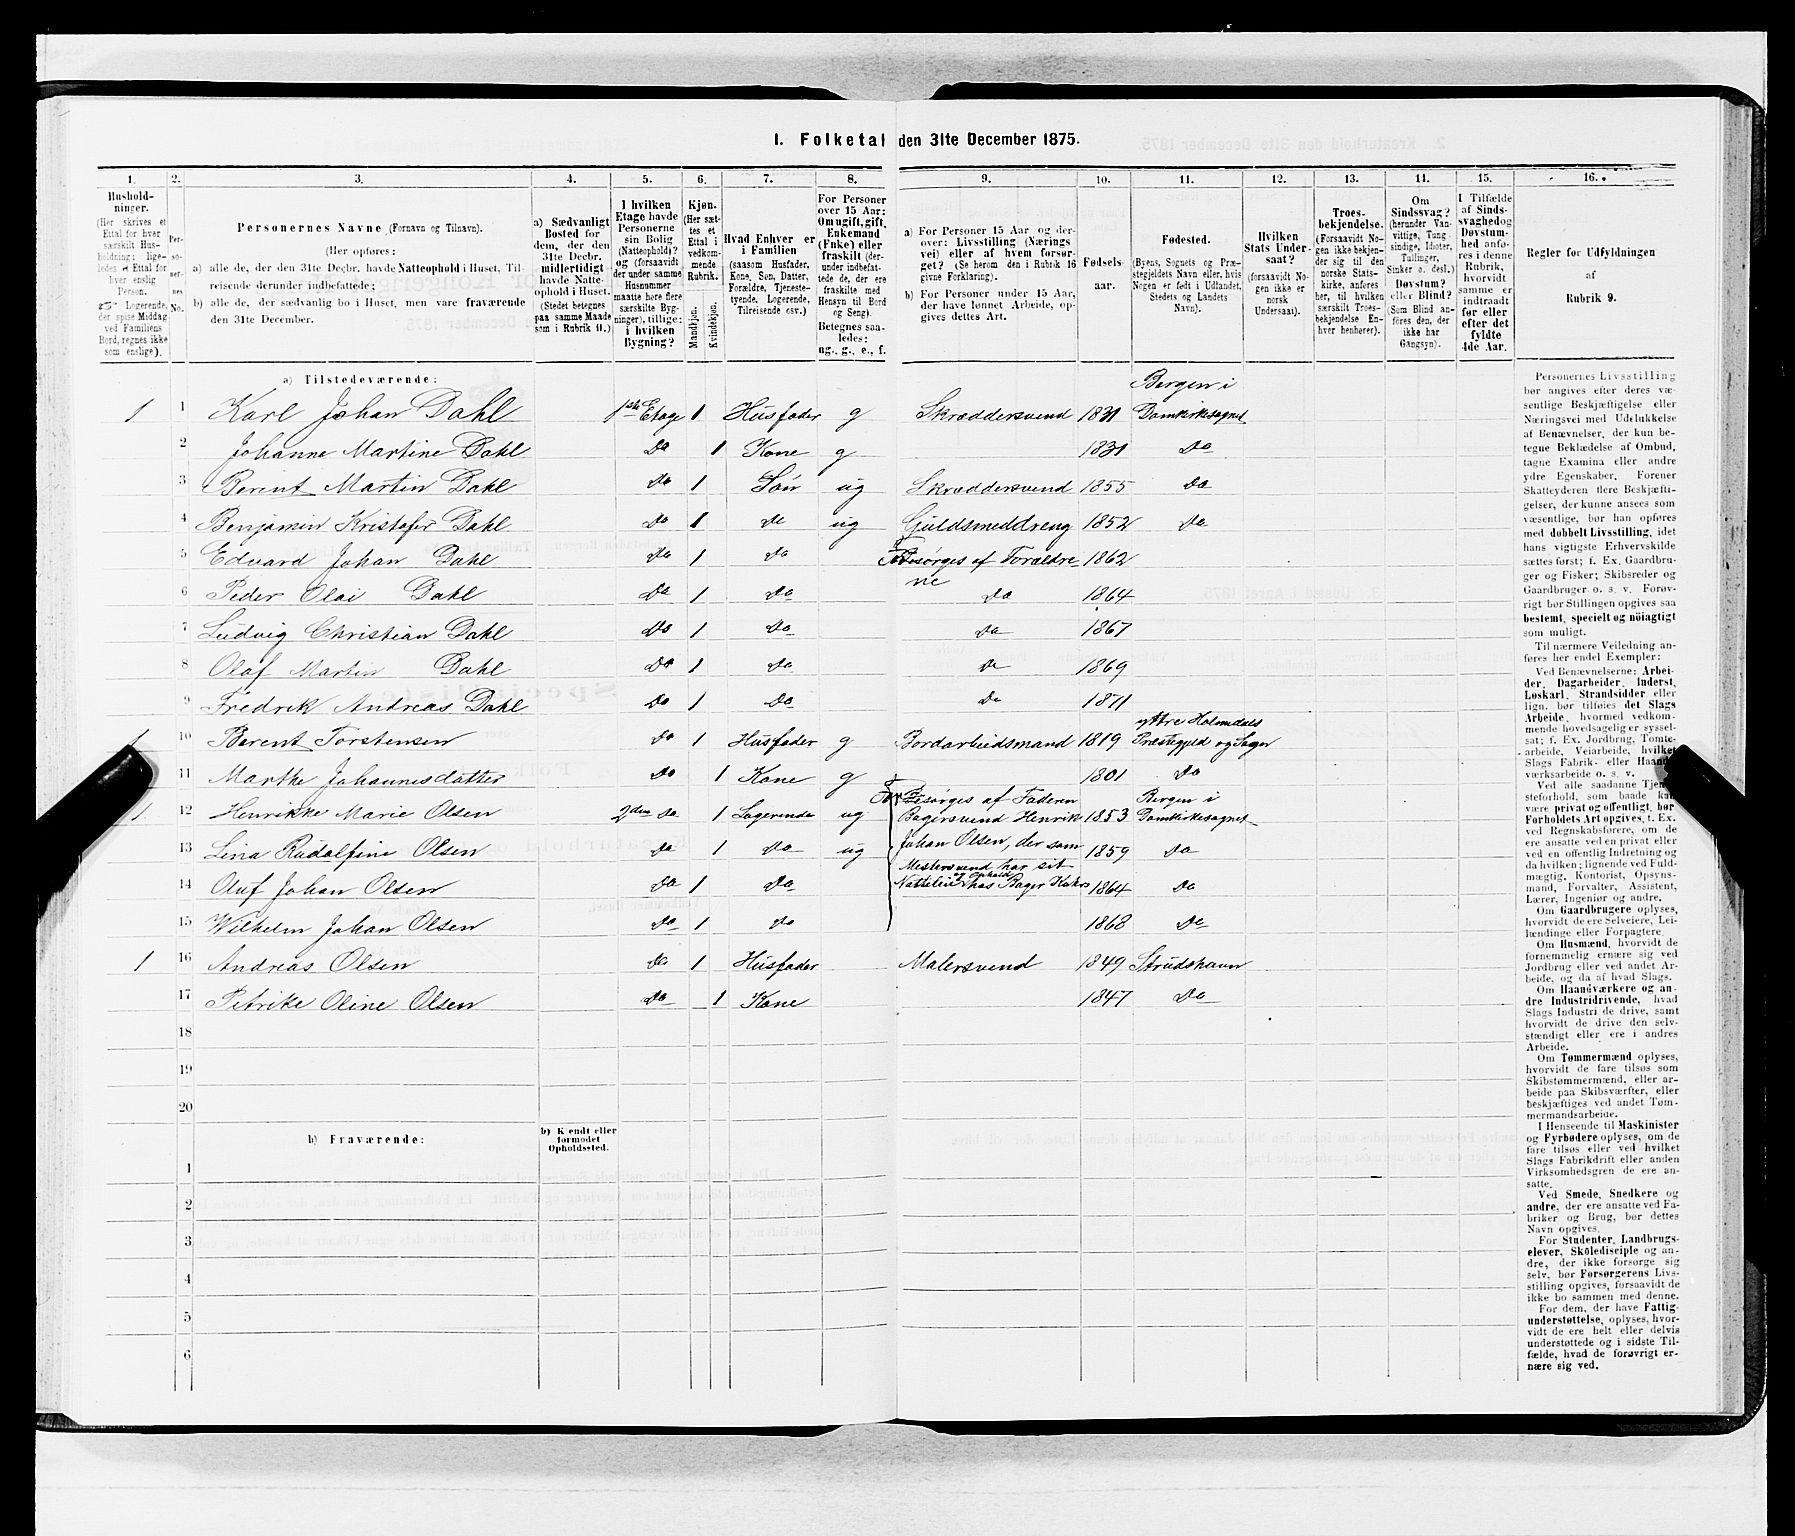 I. Folketal den 31te December 1875.
1. 2. 3. 4. 5. 6. 7. 8. 9. 10. 11. 12. 13. 14. 15. 16.
Husholdninger.
(Her skrives et Ettal for hver særskilt Husholdning; ligeledes et Ettal for hver enslig Person.
Logerende, der spise Middag ved Familiens Bord, regnes ikke som enslige).
Personernes No.
Personernes Navne (Fornavn og Tilnavn).
(Her opføres:
a) alle de, der den 31te Decbr. havde Natteophold i Huset, Tilreisende derunder indbefattede;
b) alle de, der sædvanlig bo i Huset, men vare fraværende den 31te December.
a) Sædvanligt Bosted for dem, der den 31te Decbr. midlertidigt havde Natteophold i Huset. (Stedet betegnes paa samme Maade som i Rubrik 11.)
I hvilken Etage havde Personerne sin Bolig (Natteophold)? og (forsaavidt der under samme Husnummer maatte høre flere særskilte Bygninger), tillige: i hvilken Bygning?
Kjøn. (Her sættes et Ettal i vedkommende Rubrik.
Mandkjøn. Kvindekjøn.
Hvad Enhver er i Familien (saasom Husfader, Kone, Søn, Datter, Forældre, Tjenestetyende, Logerende, Tilreisende osv.)
For Personer over 15 Aar: Om ugift, gift, Enkemand (Enke) eller fraskilt (derunder indbefattede de, der ere fraskilte med Hensyn til Bord og Seng). Betegnes saaledes: ug., g., e., f.
a) For Personer 15 Aar og derover: Livsstilling (Næringsvei) eller af hvem forsørget? (Se herom den i Rubrik 16 givne Forklaring).
b) For Personer under 15 Aar, der have lønnet Arbeide, opgives dettes Art.
Fødselsaar.
Fødested. (Byens, Sognets og Præstegjeldets Navn eller, hvis Nogen er født i Udlandet, Stedets og Landets Navn).
Hvilken Stats Undersaat? (forsaavidt Nogen ikke er norsk Undersaat).
Troesbekjendelse. (Forsaavidt Nogen ikke bekjender sig til den norske Statskirke, anføres her, til hvilken særskilt Troesbekjendelse Enhver henhører).
Om Sindssvag? (herunder Vanvittige, Tungsindige, Idioter, Tullinger, Sinker o. desl.) Døvstum? eller Blind? (Som Blind anføres den, der ikke har Gangsyn).
I Tilfælde af Sindssvaghed og Døvstumhed anføres i denne Rubrik, hvorvidt samme er indtraadt før eller efter det fyldte 4de Aar.
Regler for Udfyldningen af Rubrik 9.
a) Tilstedeværende:
Bergen i
1 1 Karl Johan Dahl 1ste Etage 1 Husfader g Skræddersvend 1831 Domkirkesognet
2 Johanne Martine Dahl Do 1 Kone g 1831 Do
3 Berent Martin Dahl Do 1 Søn ug Skræddersvend 1855 Do
4 Benjamin Kristofer Dahl Do 1 Do ug Guldsmeddreng 1852 Do
5 Edvard Johan Dahl Do 1 Do Forsørges af Forældre- 1862
ne
6 Peder Olai Dahl Do 1 Do Do 1864
7 Ludvig Christian Dahl Do 1 Do Do 1867
8 Olaf Martin Dahl Do 1 Do Do 1869
9 Fredrik Andreas Dahl Do 1 Do Do 1871
yttre Holmdals
1 10 Berent Torstensen Do 1 Husfader g Bordarbeidsmand 1819 Præstegjeld og Sogn
11 Marthe Johannesdatter Do 1 Kone g 1801 Do
Forsørges af Faderen Bergen i
1 12 Henrikke Marie Olsen 2den Do 1 Logerende ug Bagersvend Henrik 1853 Domkirkesognet
13 Lina Rudolfine Olsen Do 1 Do ug Johan Olsen, der som 1859 Do
Mestersvend har sit
og Ophold
14 Oluf Johan Olsen Do 1 Do hos Bager 1864 Do
15 Wilhelm Johan Olsen Do 1 Do 1868 Do
1 16 Andreas Olsen Do 1 Husfader Malersvend 1849 Strudshavn
17 Petrike Oline Olsen Do 1 Kone 1847 Do
18
19
20
b) Fraværende: b) Kjendt eller formodet Opholdssted.
1
2
3
4
5
6
Personernes Livsstilling
bør angives efter deres væ-
sentlige Beskjæftigelse eller
Næringsvei med Udelukkelse
af Benævnelser, der kun be-
tegne Beklædelse af Ombud,
tagne Examina eller andre
ydre Egenskaber. Forener
Skatteyderen flere Beskjæfti-
gelser, der kunne ansees som
væsentlige, bør han opføres
med dobbelt Livsstilling, idet
hans vigtigste Erhvervskilde
sættes først; f. Ex. Gaardbru-
ger og Fisker; Skibsreder og
Gaardbruger o. s. v. Forøv-
rigt bør Stillingen opgives saa
bestemt, specielt og nøiagtigt
som muligt.
Til nærmere Veiledning an-
føres her endel Exempler:
Ved Benævnelserne: Arbei-
der, Dagarbeider, Inderst,
Løskarl, Strandsidder eller
lign. bør tilføies det Slags
Arbeide, hvormed vedkom-
mende hovedsagelig er syssel-
sat; f. Ex. Jordbrug, Tomte-
arbeide, Veiarbeide, hvilket
Slags Fabrik- eller Haand-
værksarbeide o. s. v.
Ved alle saadanne Tjene-
steforhold, som baade kan
være privat og offentligt, bør
Forholdets Art opgives, t. Ex.
ved Regnskabsførere, om de
ere ansatte ved en privat eller
ved en offentlig Indretning og
da hvilken; lignende ved Fuld-
mægtig, Kontorist, Opsyns-
mand, Forvalter, Assistent,
Lærer, Ingeniør og andre.
Om Gaardbrugere oplyses,
hvorvidt de ere Selveiere, Lei-
lændinge eller Forpagtere.
Om Husmænd, hvorvidt de
fornemmelig ernære sig ved
Jordbrug eller ved andet Ar-
beide, og da af hvad Slags.
Om Haandværkere og an-
dre Industridrivende, hvad
Slags Industri de drive, samt
hvorvidt de drive den selv-
stændigt eller ere i andres
Arbeide.
Om Tømmermænd oplyses,
hvorvidt de fare tilsøs som
Skibstømmermænd, eller ar-
beide paa Skibsværfter, eller
beskjæftiges ved andet Tøm-
mermandsarbeide.
I Henseende til Maskinister
og Fyrbødere oplyses, om de
fare tilsøs eller ved hvilket
Slags Fabrikdrift eller anden
Virksomhedsgren de ere an-
satte.
Ved Smede, Snedkere og
andre, der ere ansatte ved Fa-
briker og Brug, bør dettes
Navn opgives.
For Studenter, Landbrugs-
elever, Skoledisciple og an-
dre, der ikke forsørge sig
selv, bør Forsørgerens Livs-
stilling opgives, forsaavidt de
ikke bo sammen med denne.
For dem, der have Fattig-
understøttelse, oplyses, hvor-
vidt de ere helt eller delvis
understøttede og i sidste Til-
fælde, hvad de forøvrigt er-
nære sig ved.